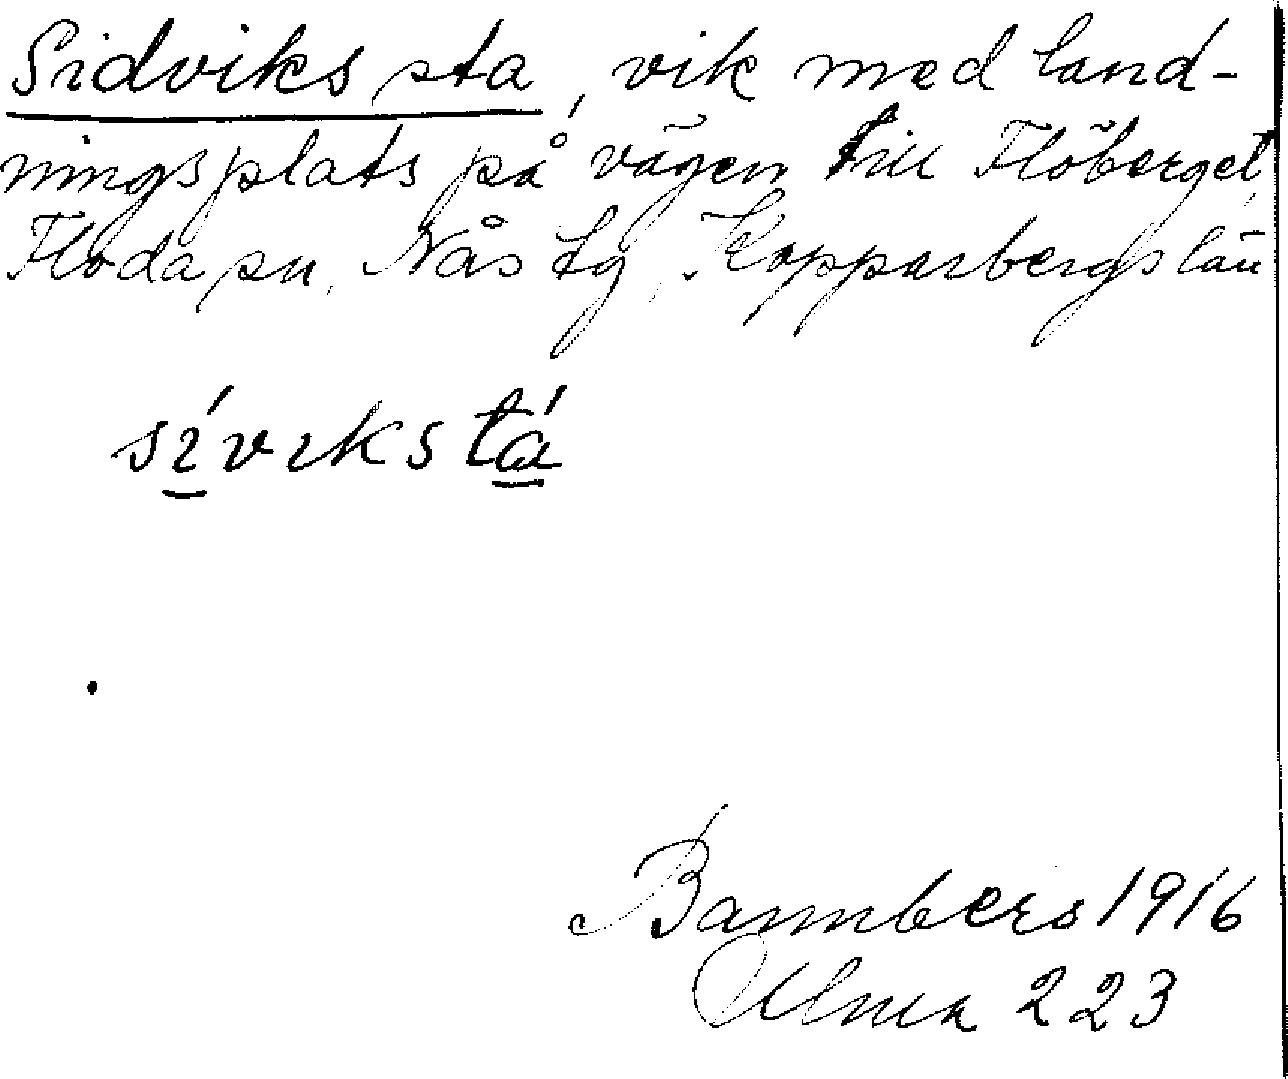 Sidviks sta, vik med land-
ningsplats på vägen till Flöberget,
Floda sn, Nås tg, Kopparbergs län
sívıkstá
Bannbers 1916
Ulma 223